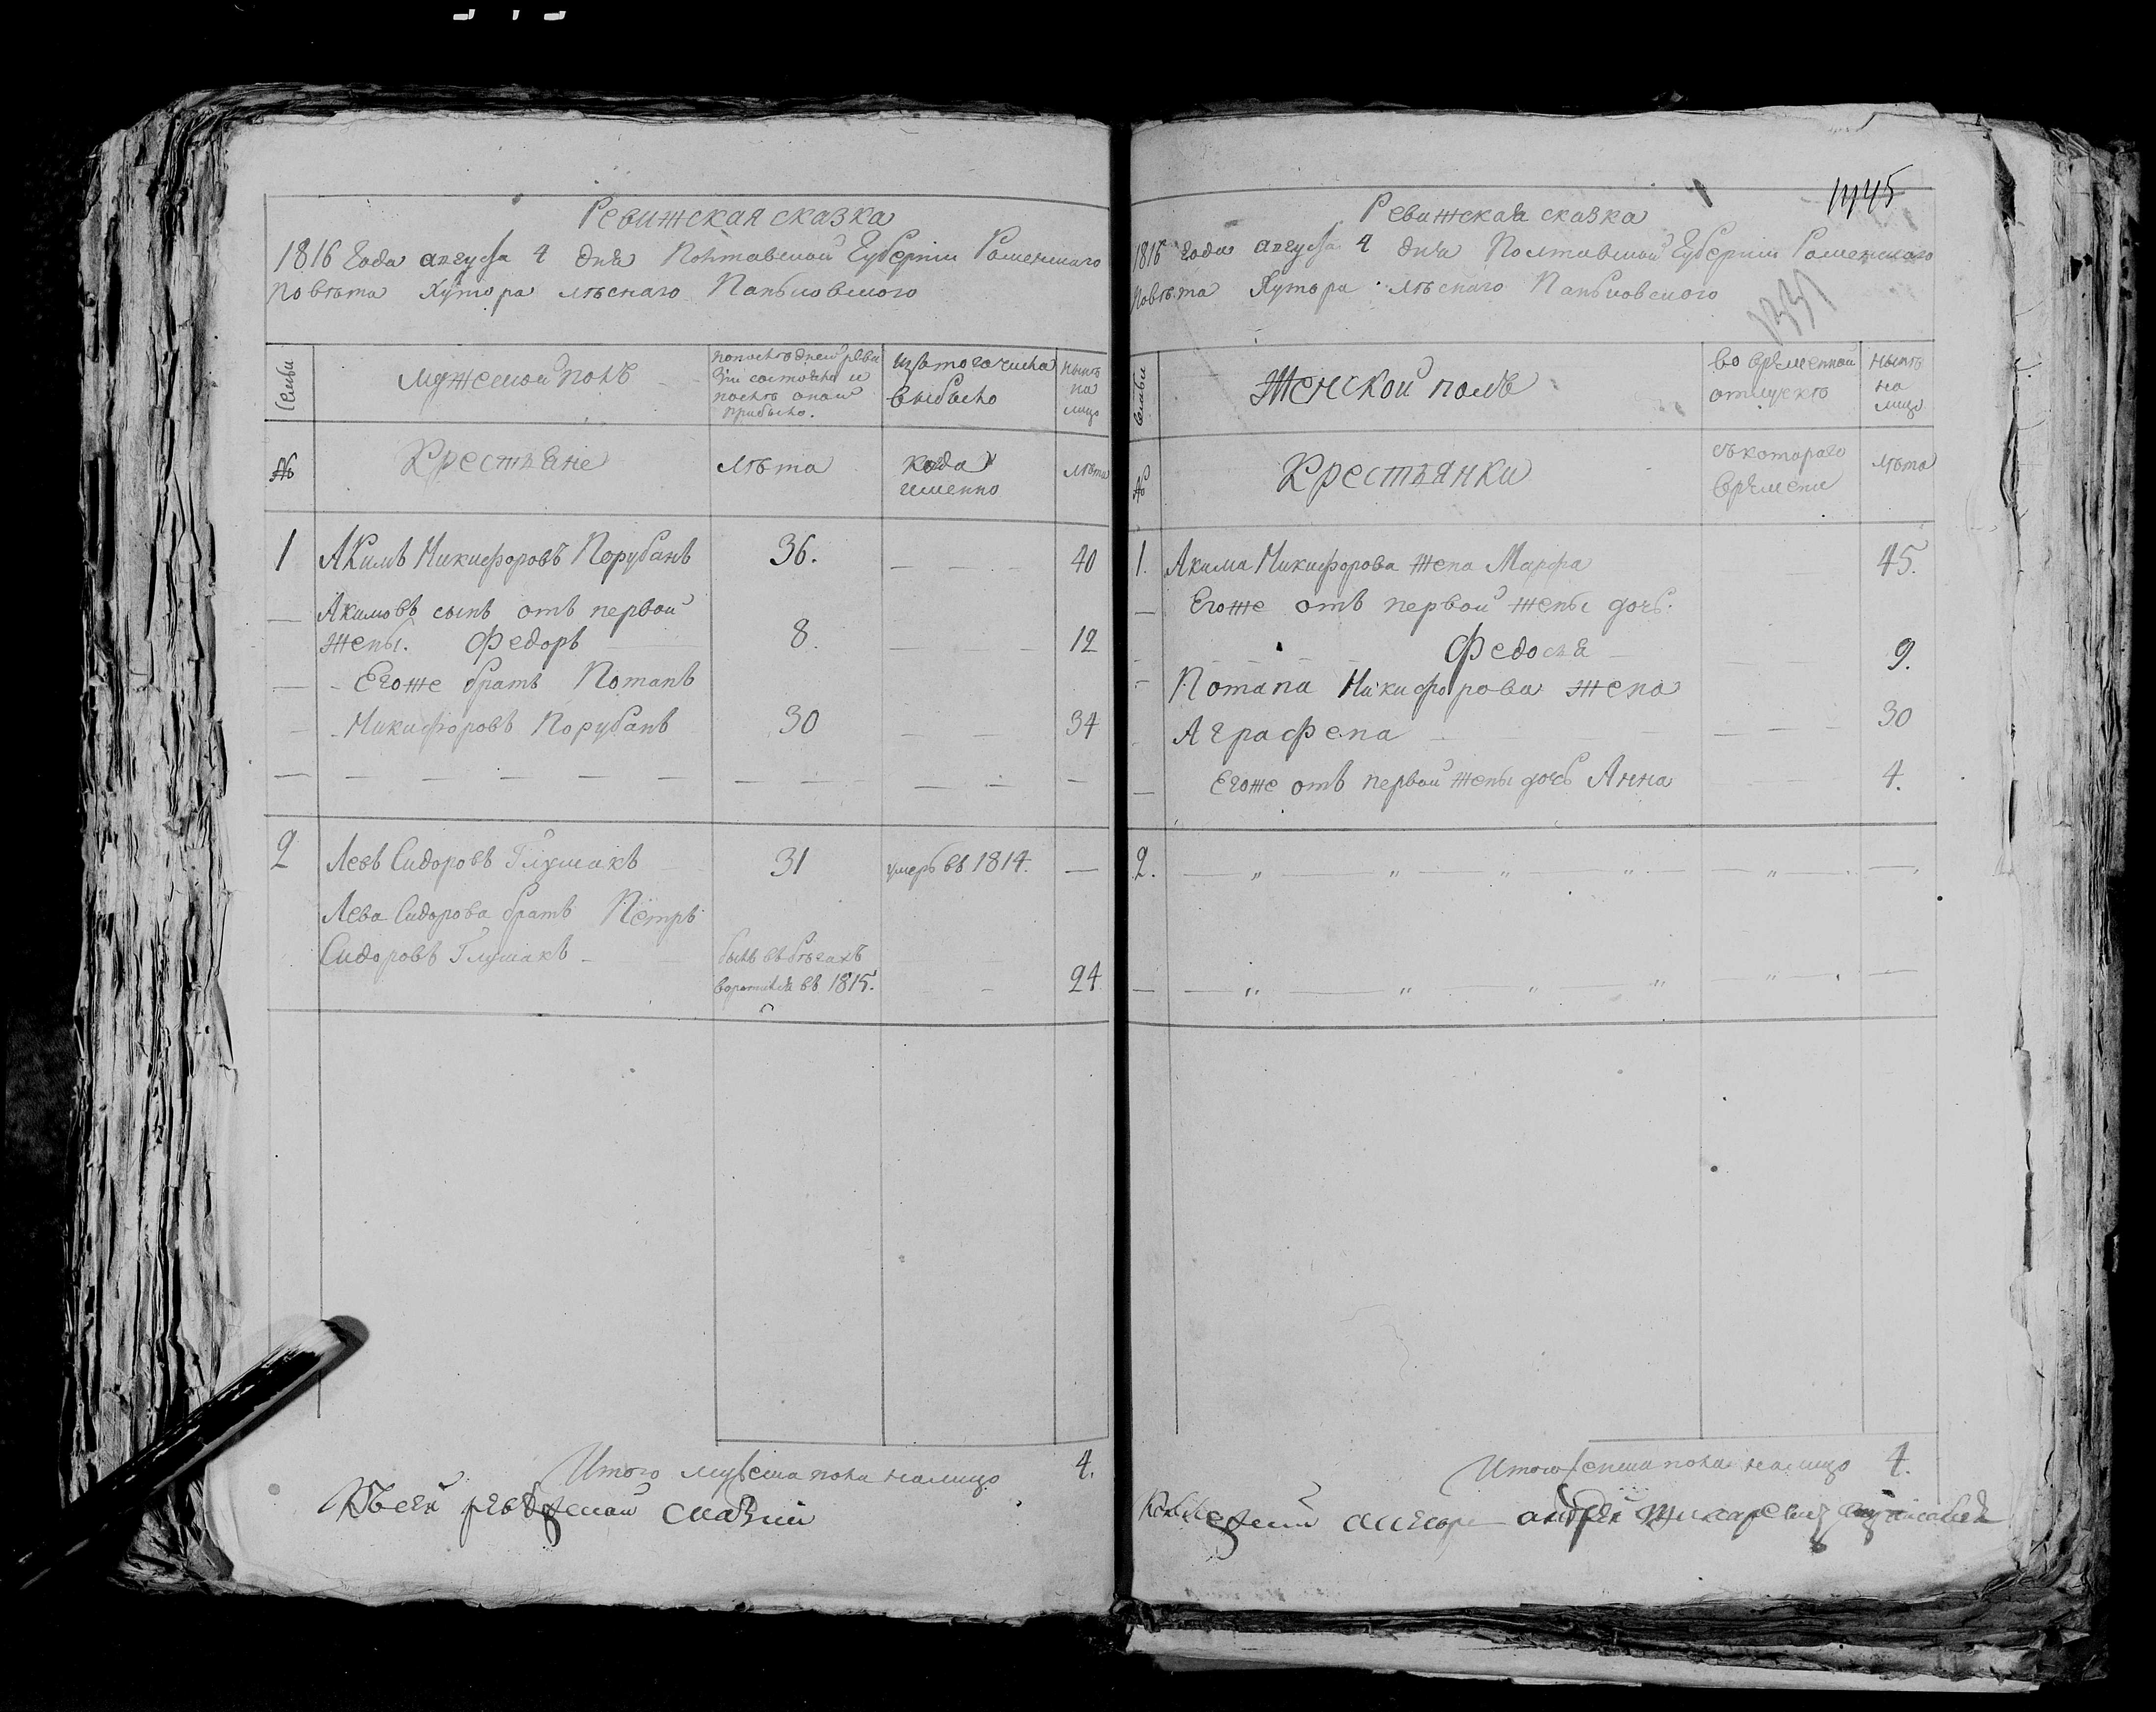 Ревижская сказка
1816 Года августа 4 дня Полтавской Губернии Роменскаго
повѣта Хутора лѣснаго
Семьи
Мужеской полъ
попослѣдней реви
зіи состояло и
послѣ оной
прибыло.
изътого числа
выбыло
нынѣ
на
лицо
№
Крестьяне
лѣта
когда
именно
лѣта
1 Акимъ Никифоровъ Порубанъ 36. 40
Акимовъ сынъ отъ первой
жены. Федоръ 8. 12
Егоже братъ Потапъ
Никифоровъ Порубанъ 30 34
2 Левъ Сидоровъ Глушакъ 31 умеръ въ 1814.
Лева Сидорова братъ Пётръ
Сидоровъ Глушакъ былъ въ бѣгахъ
воротился въ 1815. 24
Итого мужеска пола налицо 4.
Къ сей ревижской сказки
1445
Ревижская сказка
1816 года августа 4 дня Полтавской Губернии Роменскаго
повѣта Хутора лѣснаго
1331
семьи
Женской полъ
во временной
отлучкѣ
нынѣ
на
лицо
№
Крестьянки
съкотораго
времени
лѣта
1. Акима Никифорова жена Марфа 45.
Егоже отъ первой жены дочь.
Федосья 9.
Потапа Никифорова жена
Аграфена 30
Егоже отъ первой жены дочь Анна 4.
2.
Итого женска пола налицо 4.